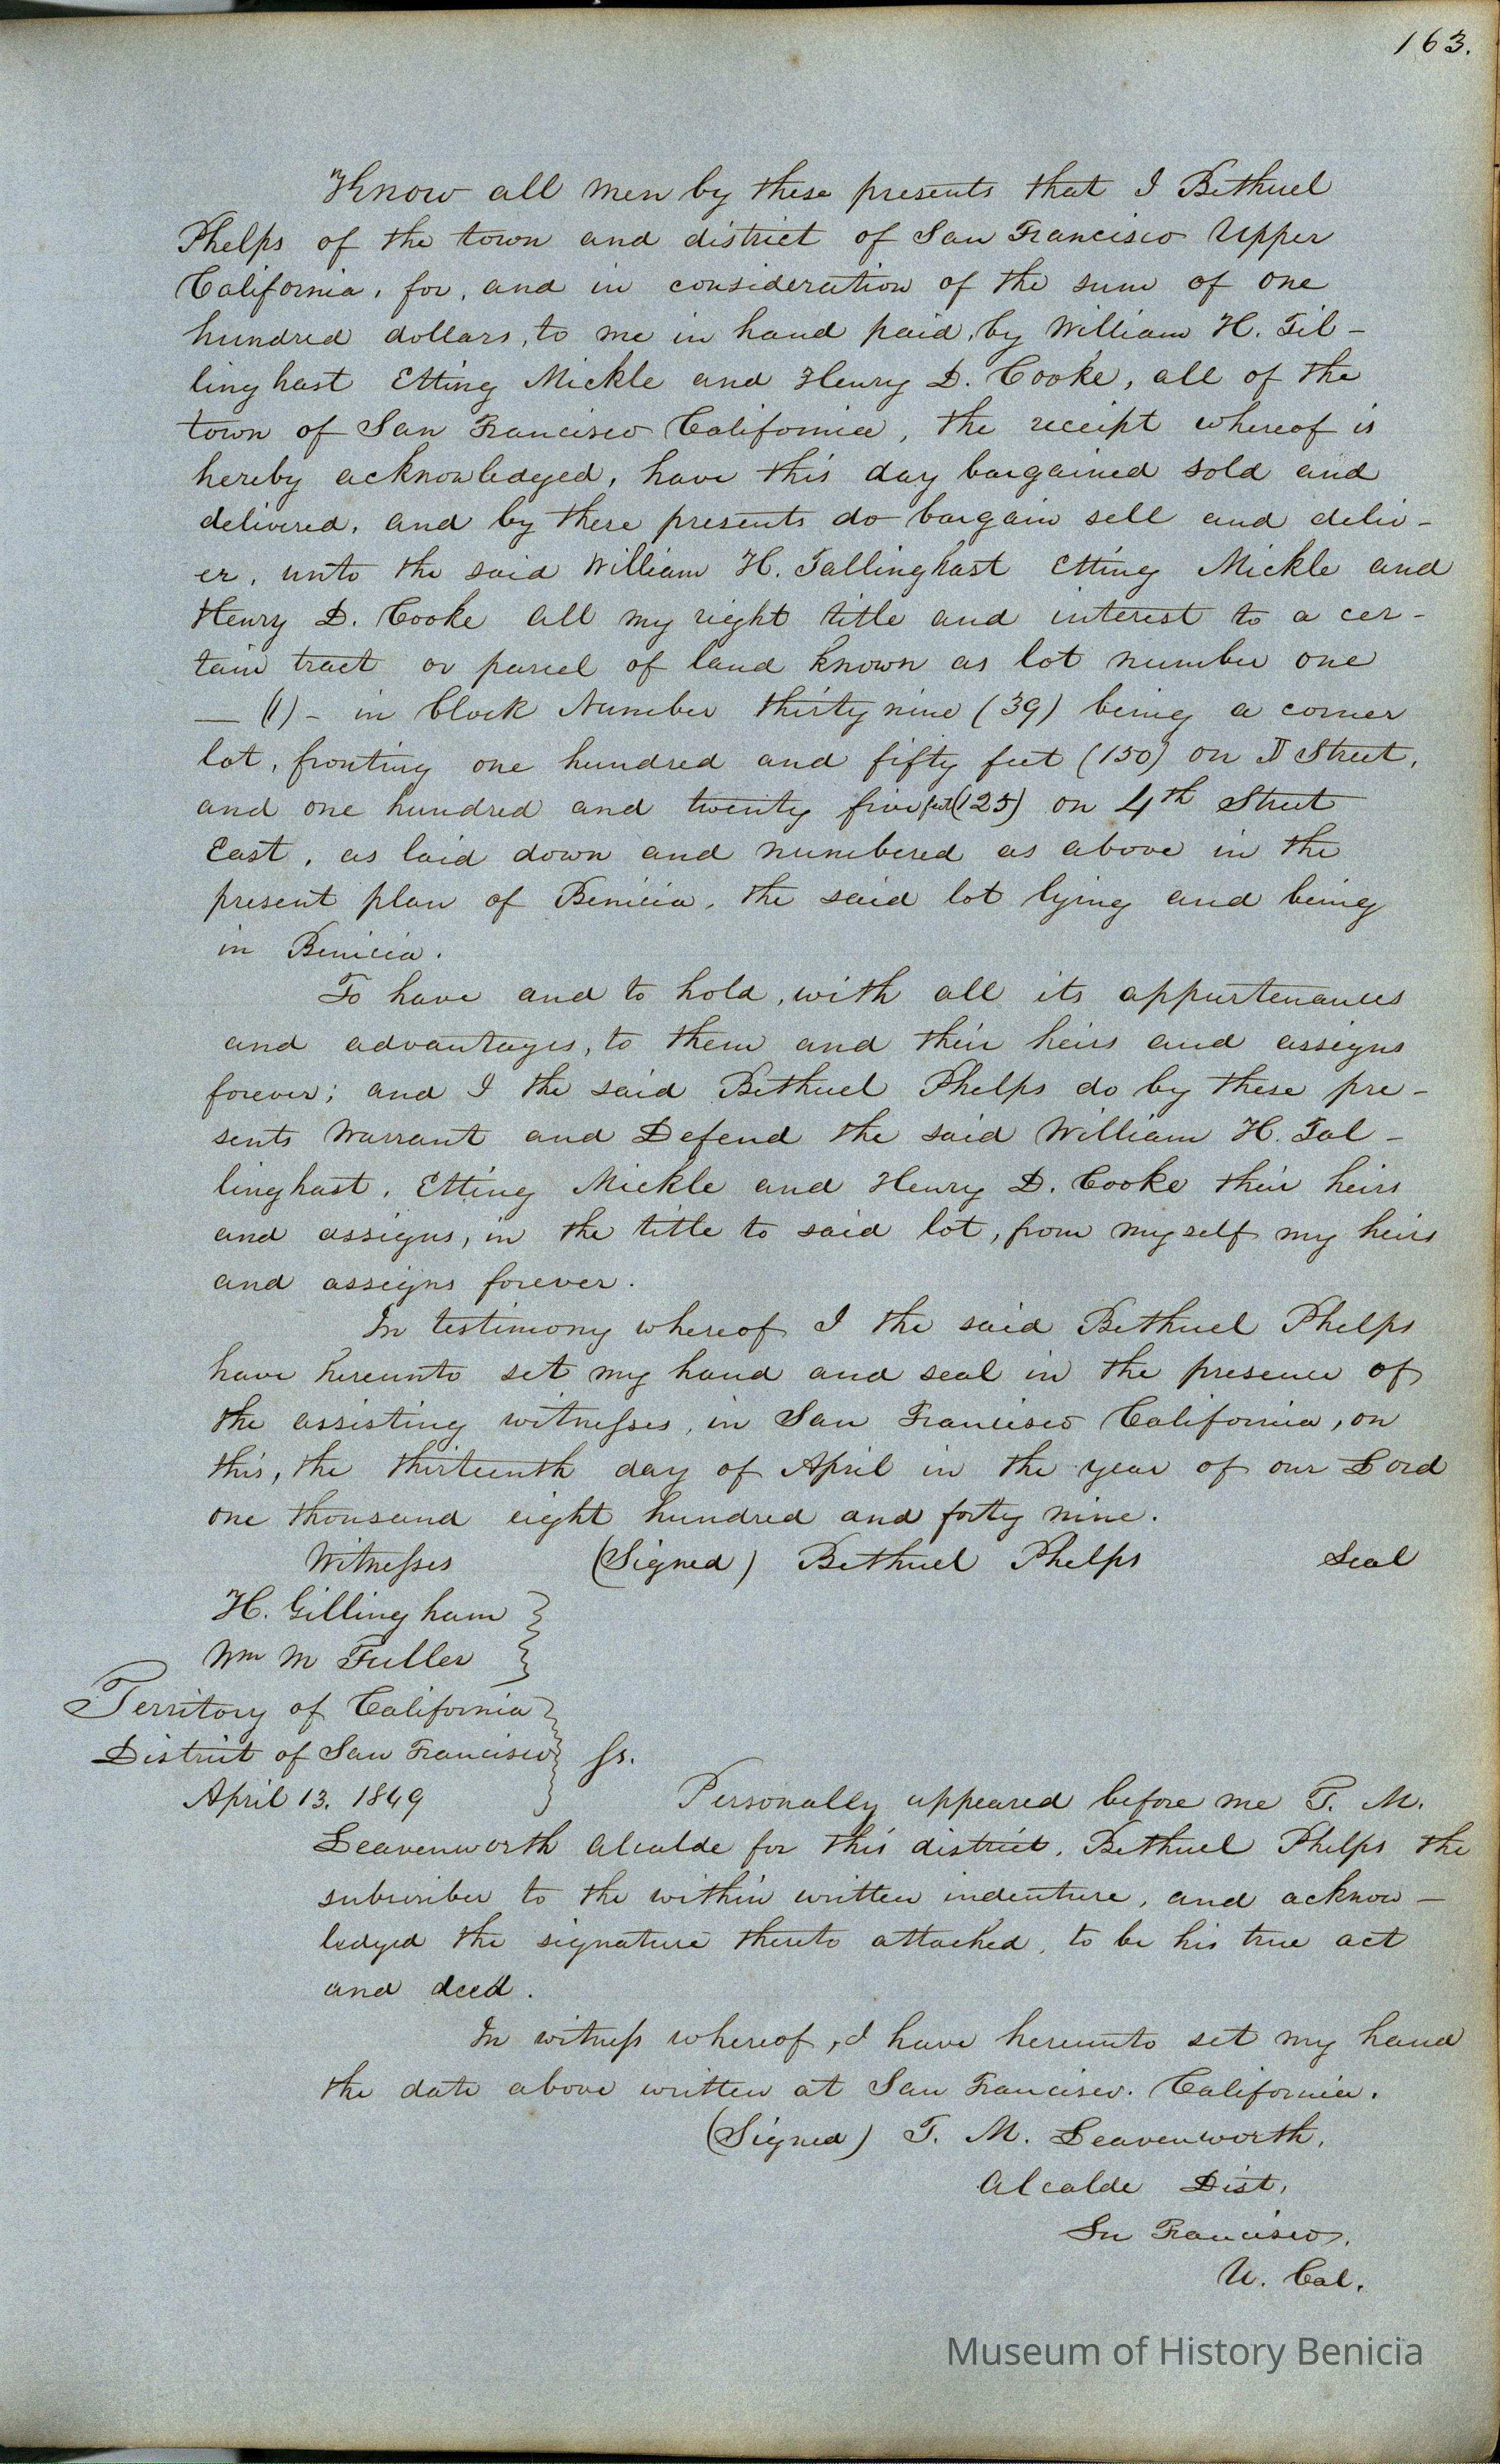 163.
Know all men by these presents that I Bethuel
Phelps of the town and district of San Francisco Upper
California, for, and in consideration of the sum of one
hundred dollars, to me in hand paid, by William H. Til-
linghast Etting Mickle and Henry D. Cooke, all of the
town of San Francisco California, the receipt whereof is
hereby acknowledged, have this day bargained sold and
delivered, and by these presents do bargain sell and deliv-
er, unto the said William H. Tallinghast Etting Mickle and
Henry D. Cooke all my right title and interest to a cer-
tain tract or parcel of land known as lot number one
— (1) - in block Number thirty nine (39) being a corner
lot, fronting one hundred and fifty feet (150) on D Street,
and one hundred and twenty five feet (125) on 4th Street
East, as laid down and numbered as above in the
present plan of Benicia, the said lot lying and being
in Benicia.
To have and to hold, with all its appurtenances
and advantages, to them and their heirs and assigns
forever; and I the said Bethuel Phelps do by these pre-
sents Warrant and Defend the said William H. Tal-
linghast, Etting Mickle and Henry D. Cooke their heirs
and assigns, in the title to said lot, from myself my heirs
and assigns forever.
In testimony whereof I the said Bethuel Phelps
have hereunto set my hand and seal in the presence of
the assisting witnesses, in San Francisco California, on
this, the thirteenth day of April in the year of our Lord
one thousand eight hundred and forty nine.
Witnesses (Signed) Bethuel Phelps Seal
H. Gillingham
Wm M Fuller
Territory of California
District of San Francisco ss.
April 13. 1849 Personally appeared before me T. M.
Leavenworth Alcalde for this district, Bethuel Phelps the
subscriber to the within written indenture, and acknow-
ledged the signature thereto attached, to be his true act
and deed.
In witness whereof, I have hereunto set my hand
the date above written at San Francisco. California.
(Signed) T. M. Leavenworth,
Alcalde Dist,
Sn Francisco,
U. Cal.
Museum of History Benicia